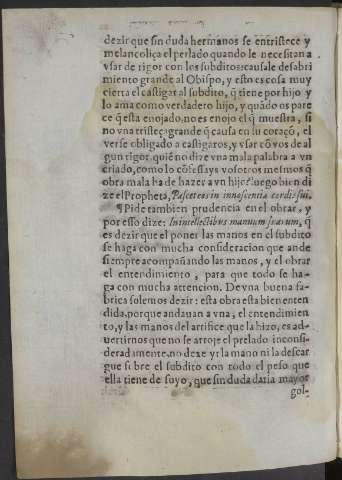 dezir que sin duda hermanos se entristece y
melancoliça el perlado quando le necesitan a
vsar de rigor con los subditos: causale desabri
miento grande al Obispo, y esto es cosa muy
cierta el castigar al subdito, q̃ tiene por hijo y
lo ama como verdadero hijo, y quãdo os pare
ce q̃ esta enojado, no es enojo el q̃ muestra, si
no vna tristeça grande q̃ causa en su coraçõ, el
verse obligado a castigaros, y vsar cõ vos de al
gun rigor. quiẽ no dize vna mala palabra a vn
criado, como lo cõfessays vosotros mesmos q̃
obra mala ha de hazer a vn hijo? luego bien di
ze el Propheta, Pasce eos in innocentia cordis sui.
¶ Pide tambien prudencia en el obrar, y
por esso dize: In intellectibus manuum suarum, q̃
es dezir que el poner las manos en el subdito
se haga con mucha consideracion que ande
siempre acompañando las manos, y el obrar
el entendimiento, para que todo se ha-
ga con mucha attencion. De vna buena fa-
brica solemos dezir: esta obra esta bien enten
dida, porque andauan a vna, el entendimien
to, y las manos del artifice que la hizo, es ad-
uertirnos que no se arroje el prelado inconsi-
deradamente, no dexe yr la mano ni la descar
gue sobre el subdito con todo el peso que
ella tiene de suyo, que sin duda daria mayor
gol-